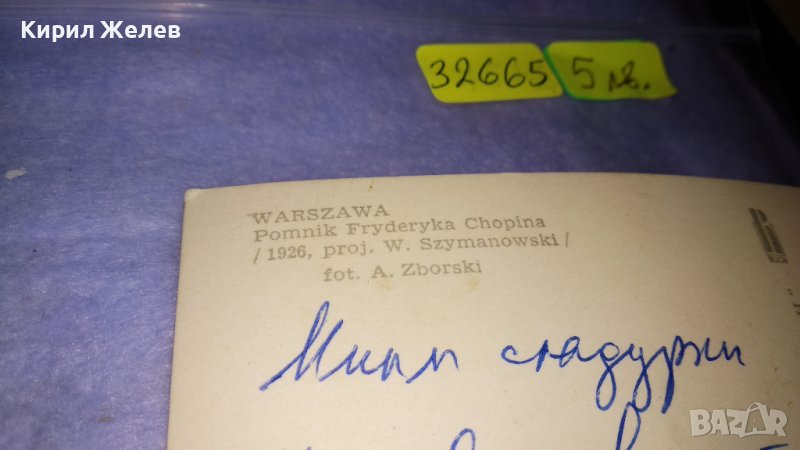 Кирил Желев
32665 5 лв.
WARSZAWA
Pomnik Fryderyka Chopina
/ 1926, proj. W. Szymanowski /
fot. A. Zborski
RUCH
BAZAR